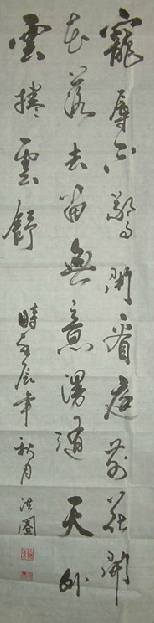 寵辱不驚閑看庭前花開
花落去留無意漫隨天外
雲捲雲舒
時辰年秋月